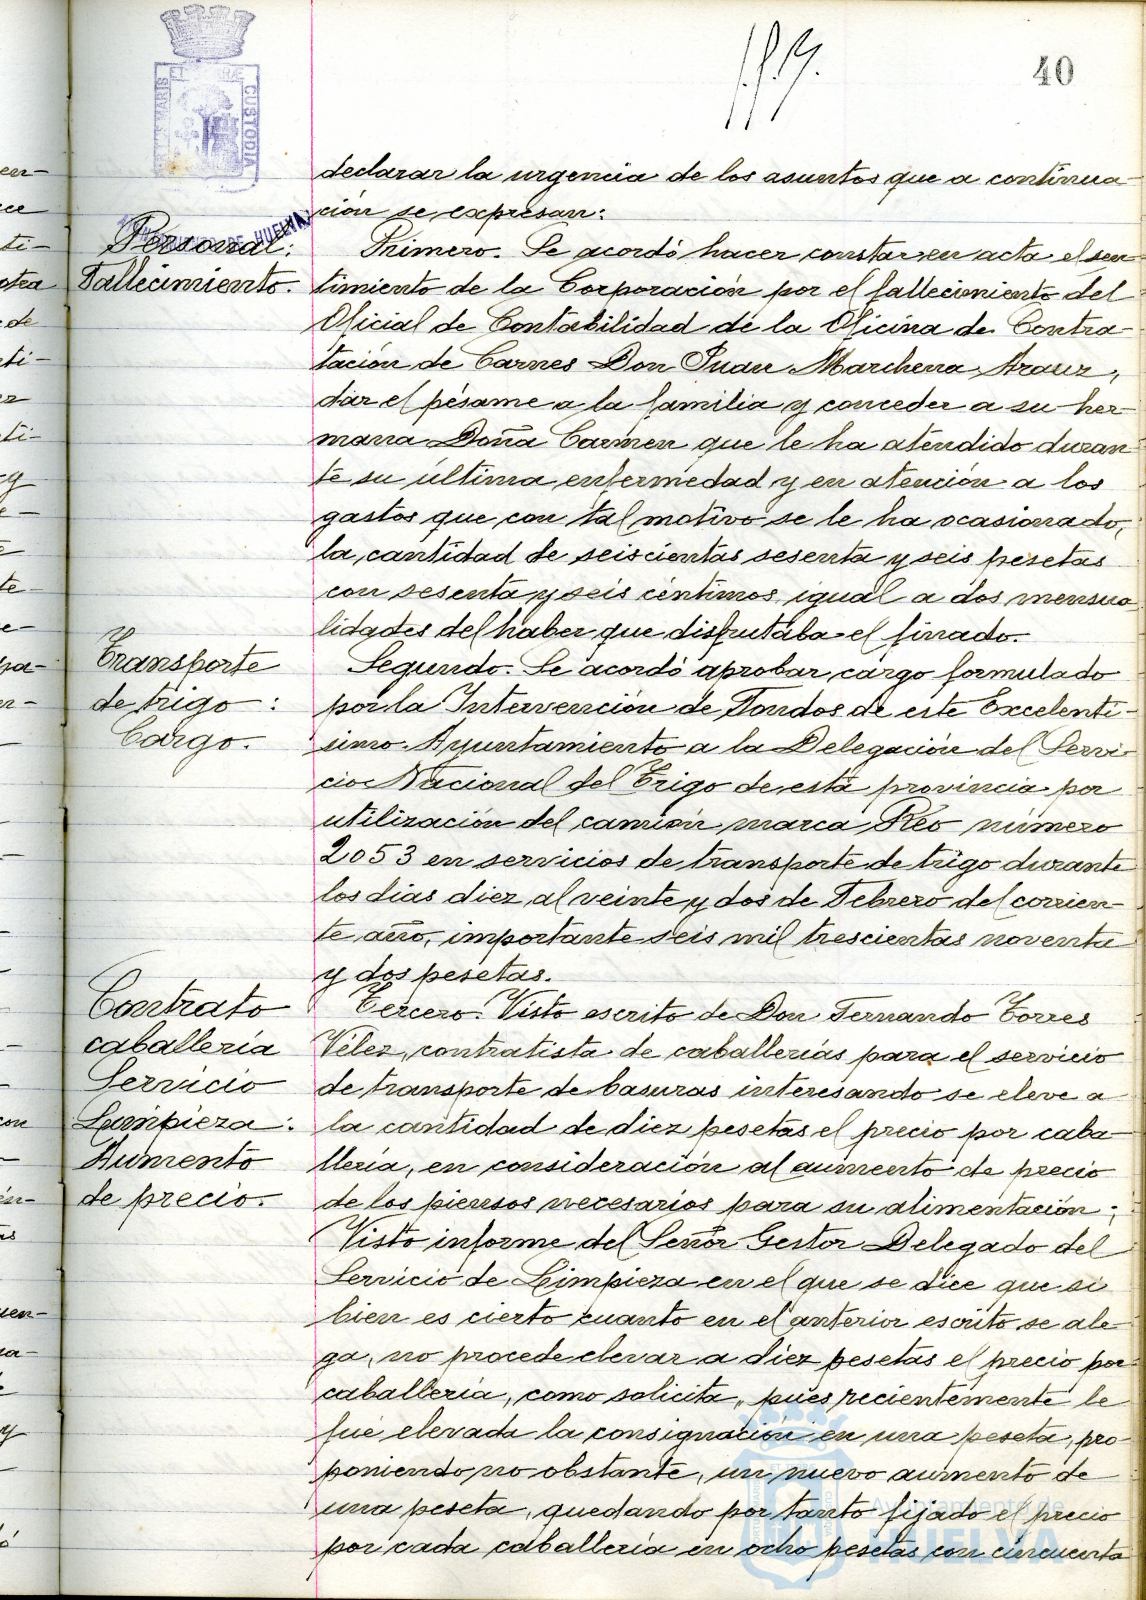 40
declarar la urgencia de los asuntos que a continua-
ción se expresan:
Personal:
Fallecimiento.
Primero. Se acordó hacer constar en acta el sen-
timiento de la Corporación por el fallecimiento del
Oficial de Contabilidad de la Oficina de Contra-
tación de Carnes Don Juan Marchena Arauz,
dar el pésame a la familia y conceder a su her-
mana Doña Carmen que le ha atendido duran-
te su última enfermedad y en atención a los
gastos que con tal motivo se le ha ocasionado,
la cantidad de seiscientas sesenta y seis pesetas
con sesenta y seis céntimos, igual a dos mensua-
lidades del haber que disfrutaba el finado.
Transporte
de trigo:
Cargo.
Segundo. Se acordó aprobar cargo formulado
por la Intervención de Fondos de este Excelentí-
simo Ayuntamiento a la Delegación del Servi-
cio Nacional del Trigo de esta provincia por
utilización del camión marca Reo número
2053 en servicios de transporte de trigo durante
los días diez al veinte y dos de Febrero del corrien-
te año, importante seis mil trescientas noventa
y dos pesetas.
Contrato
caballería
Servicio
Limpieza:
Aumento
de precio.
Tercero. Visto escrito de Don Fernando Torres
Vélez, contratista de caballerías para el servicio
de transporte de basuras interesando se eleve a
la cantidad de diez pesetas el precio por caba-
llería, en consideración al aumento de precio
de los piensos necesarios para su alimentación;
Visto informe del Señor Gestor Delegado del
Servicio de Limpieza en el que se dice que si
bien es cierto cuanto en el anterior escrito se ale-
ga, no procede elevar a diez pesetas el precio por
caballería, como solicita, pues recientemente le
fué elevada la consignación en una peseta, pro-
poniendo no obstante, un nuevo aumento de
una peseta, quedando por tanto fijado el precio
por cada caballería en ocho pesetas con cincuenta
Ayuntamiento de
HUELVA